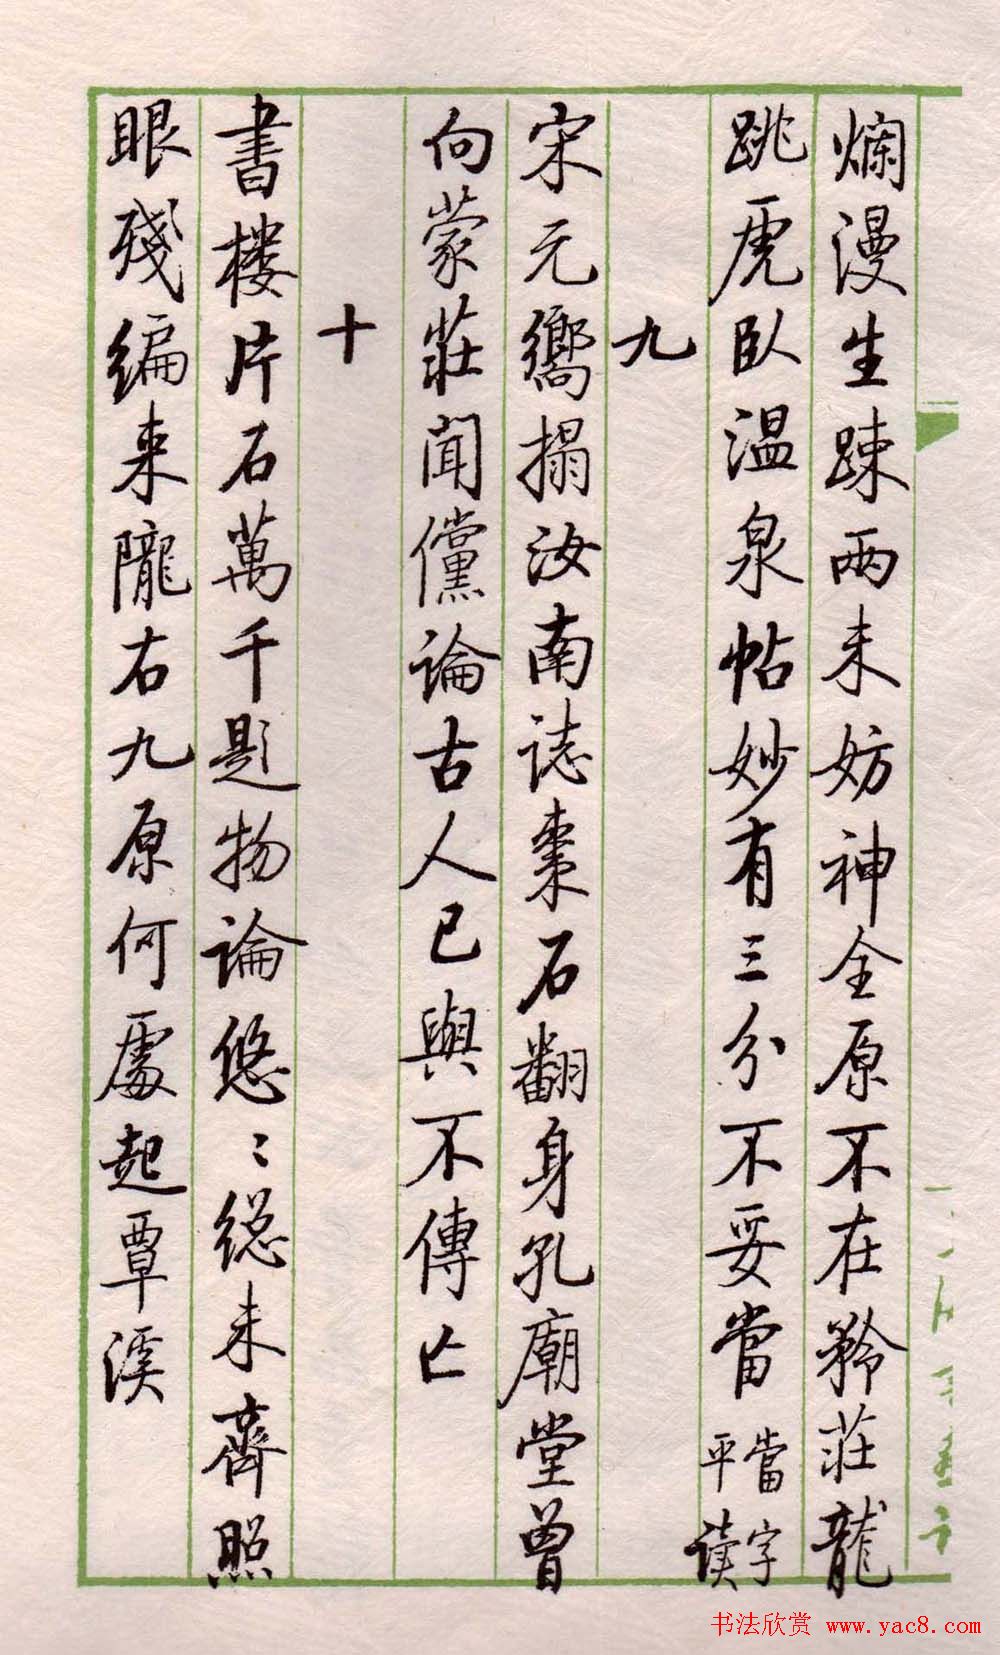 爛漫生疎兩未妨神全原不在矜莊龍
跳虎臥温泉帖妙有三分不妥當
當字
平读
九
宋元嚮搨汝南誌棗石翻身孔廟堂曾
向蒙莊聞儻論古人已與不傳亡
十
書楼片石萬千題物論悠〻總未齊照
眼殘编来隴右九原何處起覃溪
书法欣赏 www.yac8.com